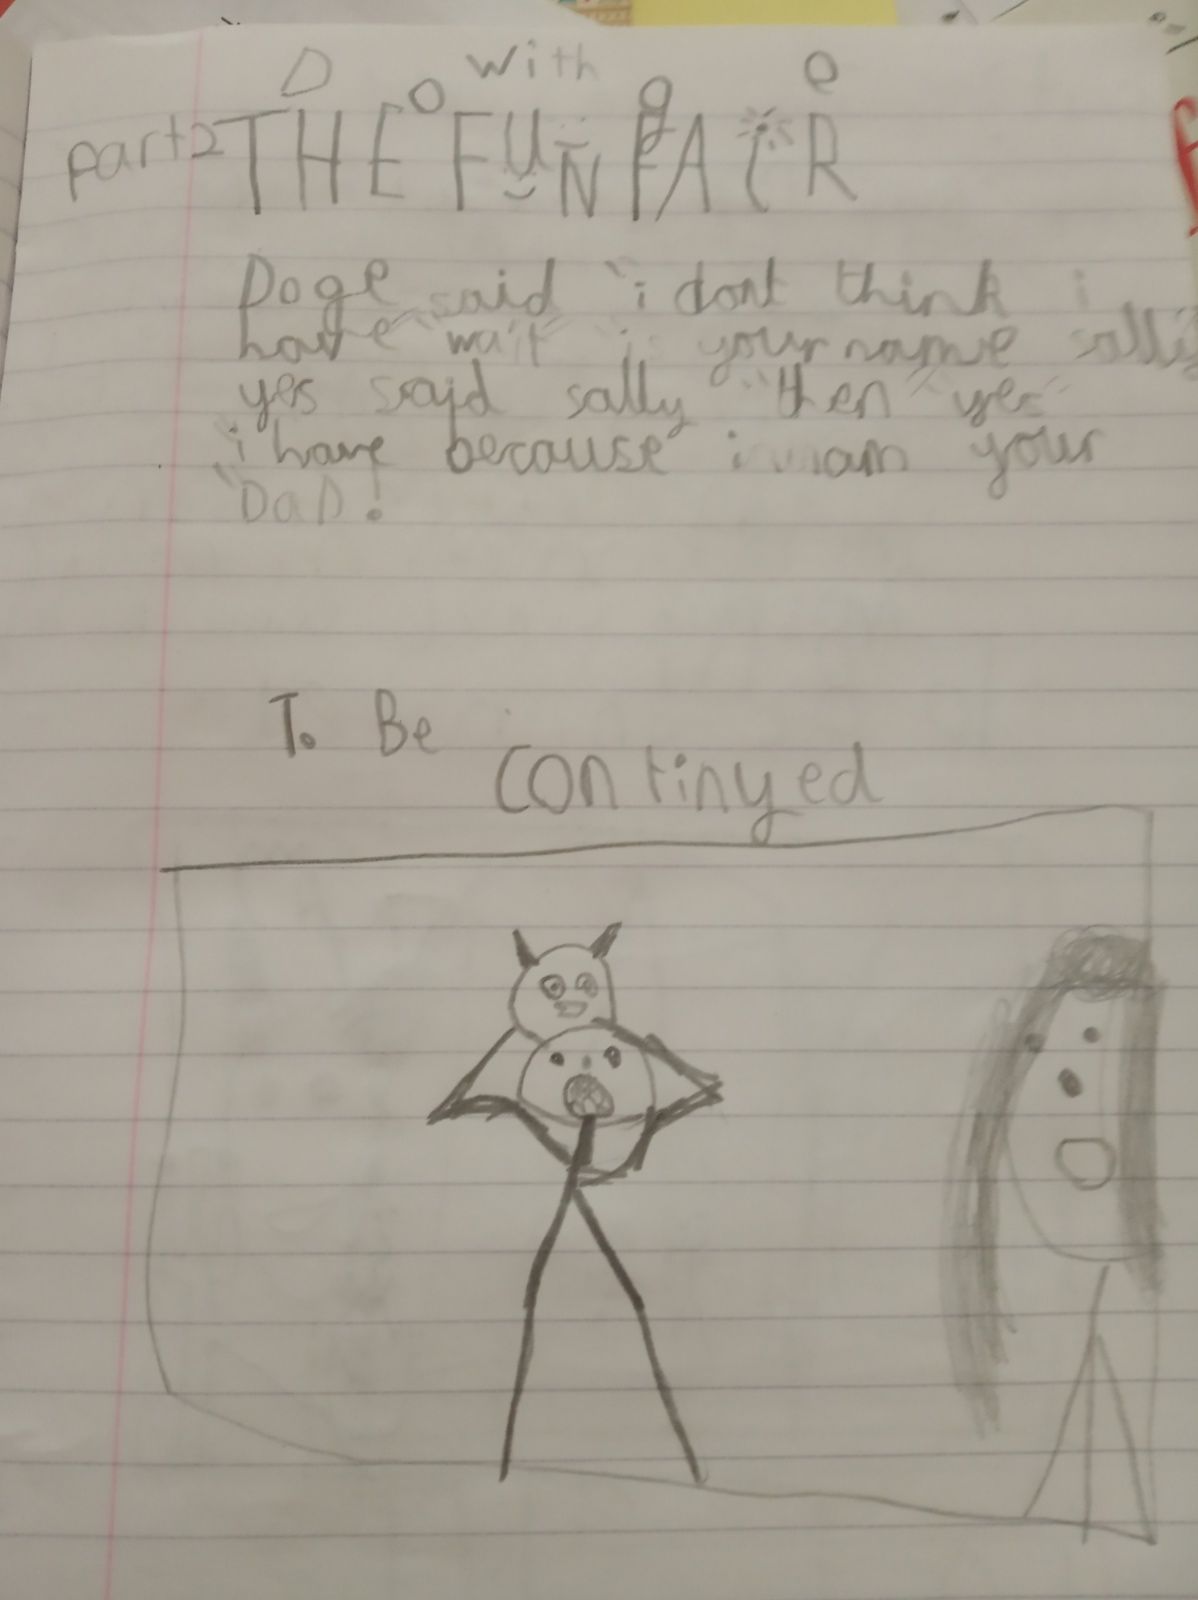 with
D o g e
part 2 THE FUN FAIR
Doge said "i dont think i
have" "wait is your name sally
yes said sally "then yes"
i have because i am your
"DaD!
To Be
continyed